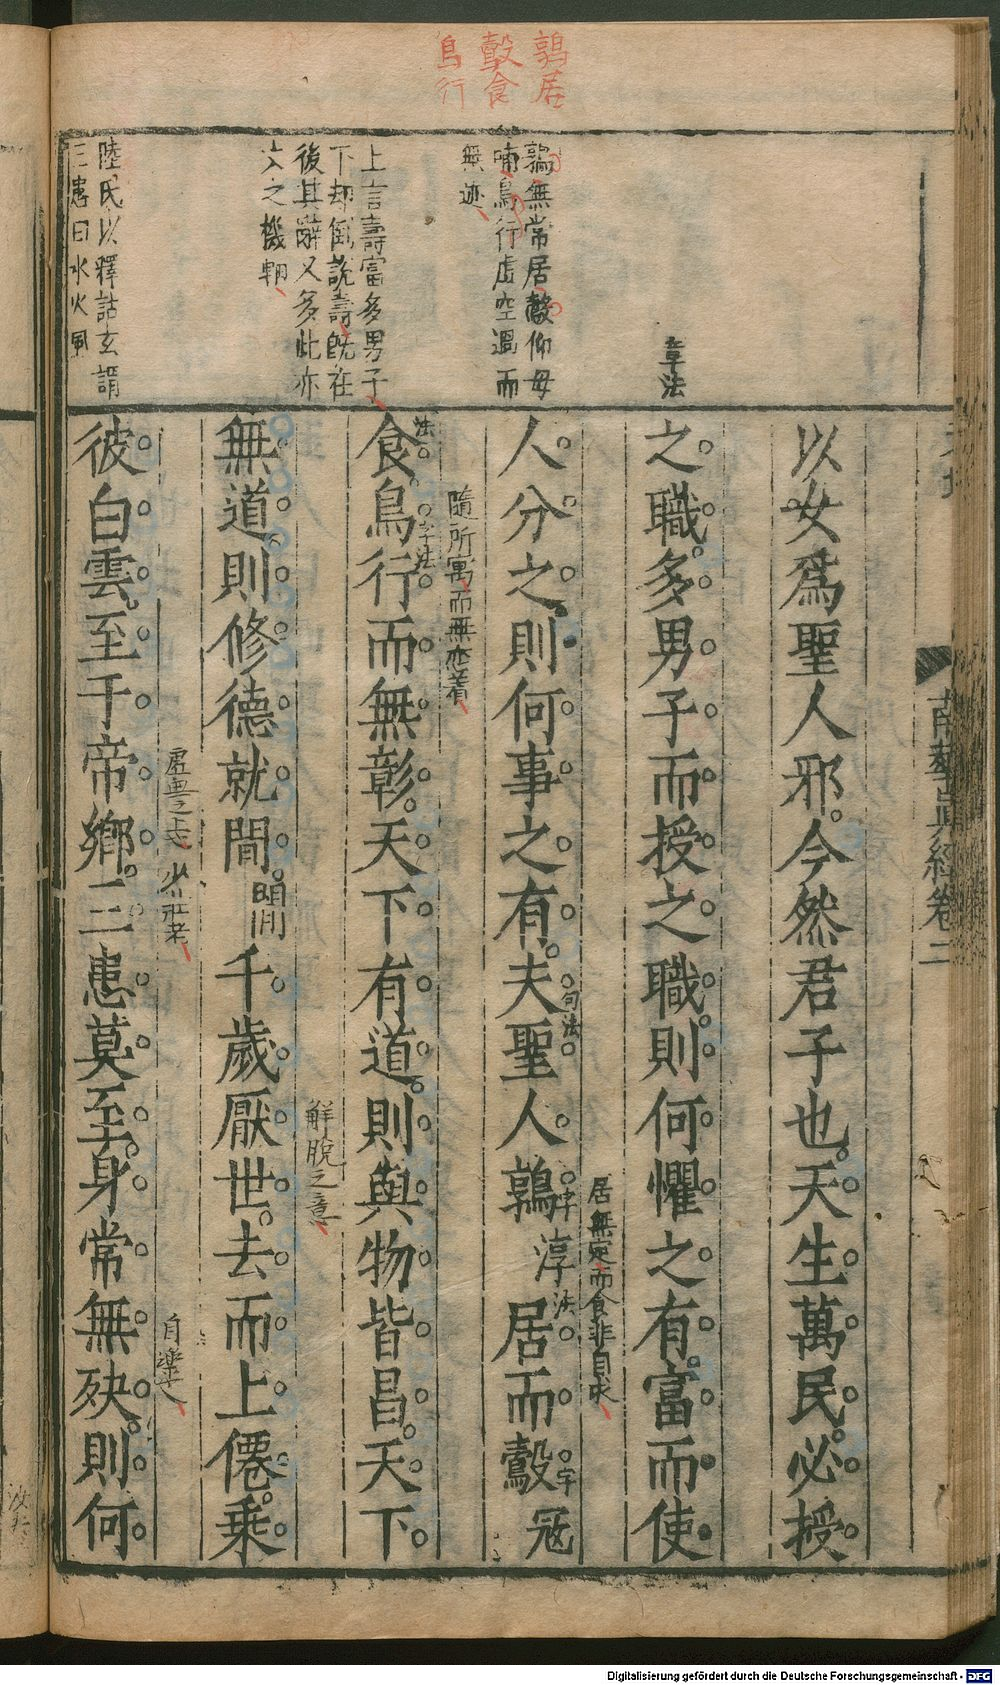 鶉居
鷇食
鳥行
章法
鶉無常居鷇仰母
哺鳥行虛空過而
無迹
上言壽富多男子
下却倒說壽既在
後其辭又多此亦
文之機軸
陸氏以釋詁玄謂
三患曰水火風
以女爲聖人邪今然君子也天生萬民必授
之職多男子而授之職則何懼之有富而使
居無定而食非自求
人分之則何事之有夫聖人鶉淳居而鷇冦
句法
字法
字
隨所寓而無戀着
法
食鳥行而無彰天下有道則與物皆昌天下
字法
解脫之意
無道則修德就閒音閑千歲厭世去而上僊乘
虛無之上
少壯老
自樂
彼白雲至于帝鄉三患莫至身常無殃則何
南華眞經卷二
Digitalisierung gefördert durch die Deutsche Forschungsgemeinschaft - DFG